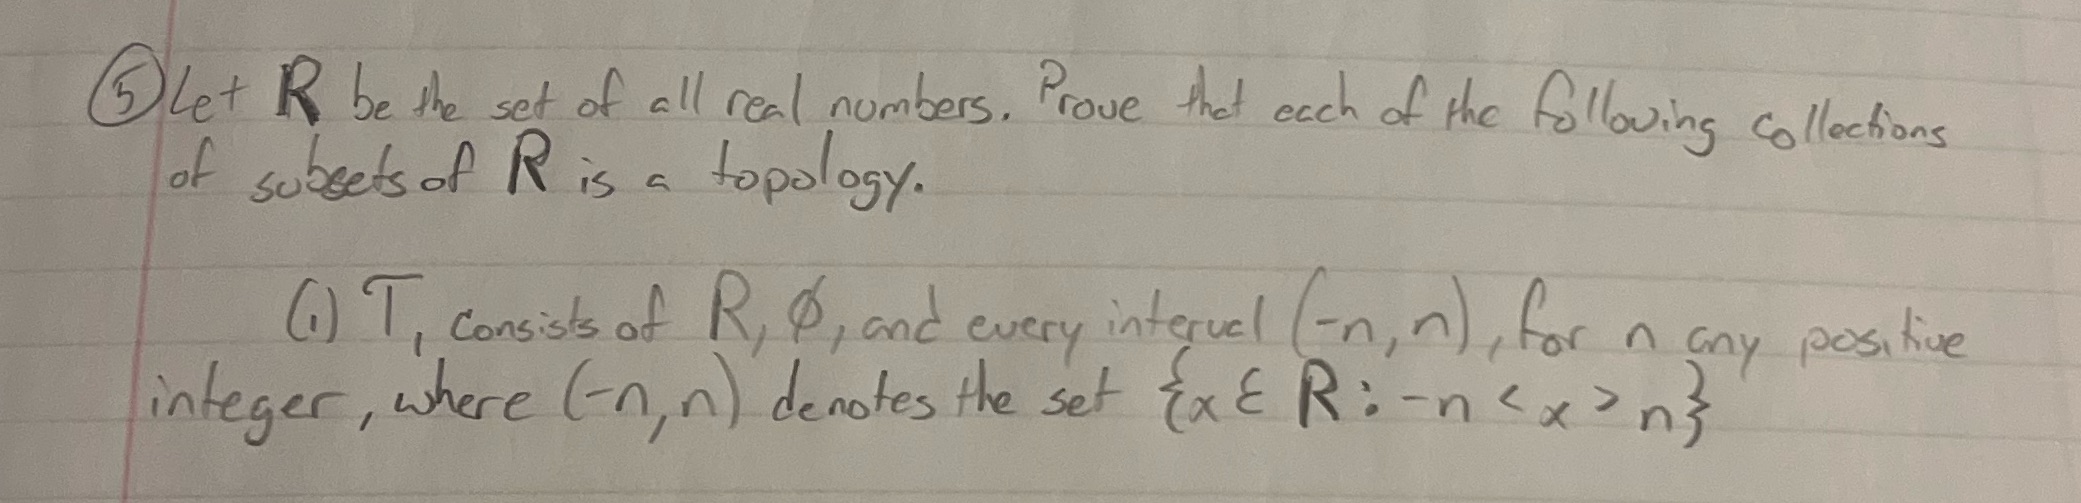 ⑤ Let R be the set of all real numbers. Prove that each of the following collections
of subsets of R is a topology.
(i) T₁ consists of R, ∅, and every interval (-n, n), for n any positive
integer, where (-n, n) denotes the set {x ∈ R : -n < x > n}